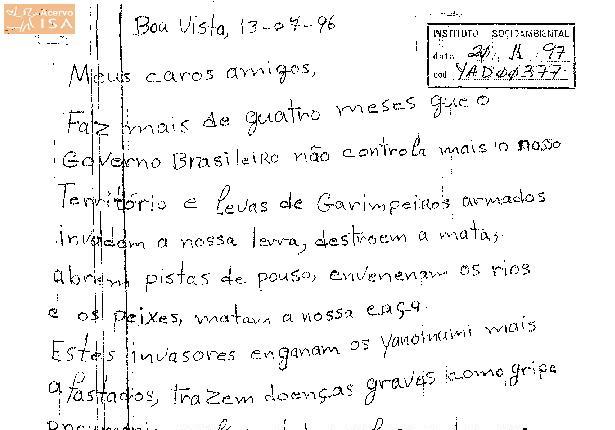 Acervo
ISA
Boa Vista, 13-07-96
INSTITUTO SOCIOAMBIENTAL
data
97
cod. YAD00377
Meus caros amigos,
Faz mais de quatro meses que o
Governo Brasileiro não controla mais o nosso
Território e levas de Garimpeiros armados
invadem a nossa terra, destroem a mata,
abrem pistas de pouso, envenenam os rios
e os peixes, matam a nossa caça.
Estes invasores enganam os Yanomami mais
afastados, trazem doenças graves como gripe